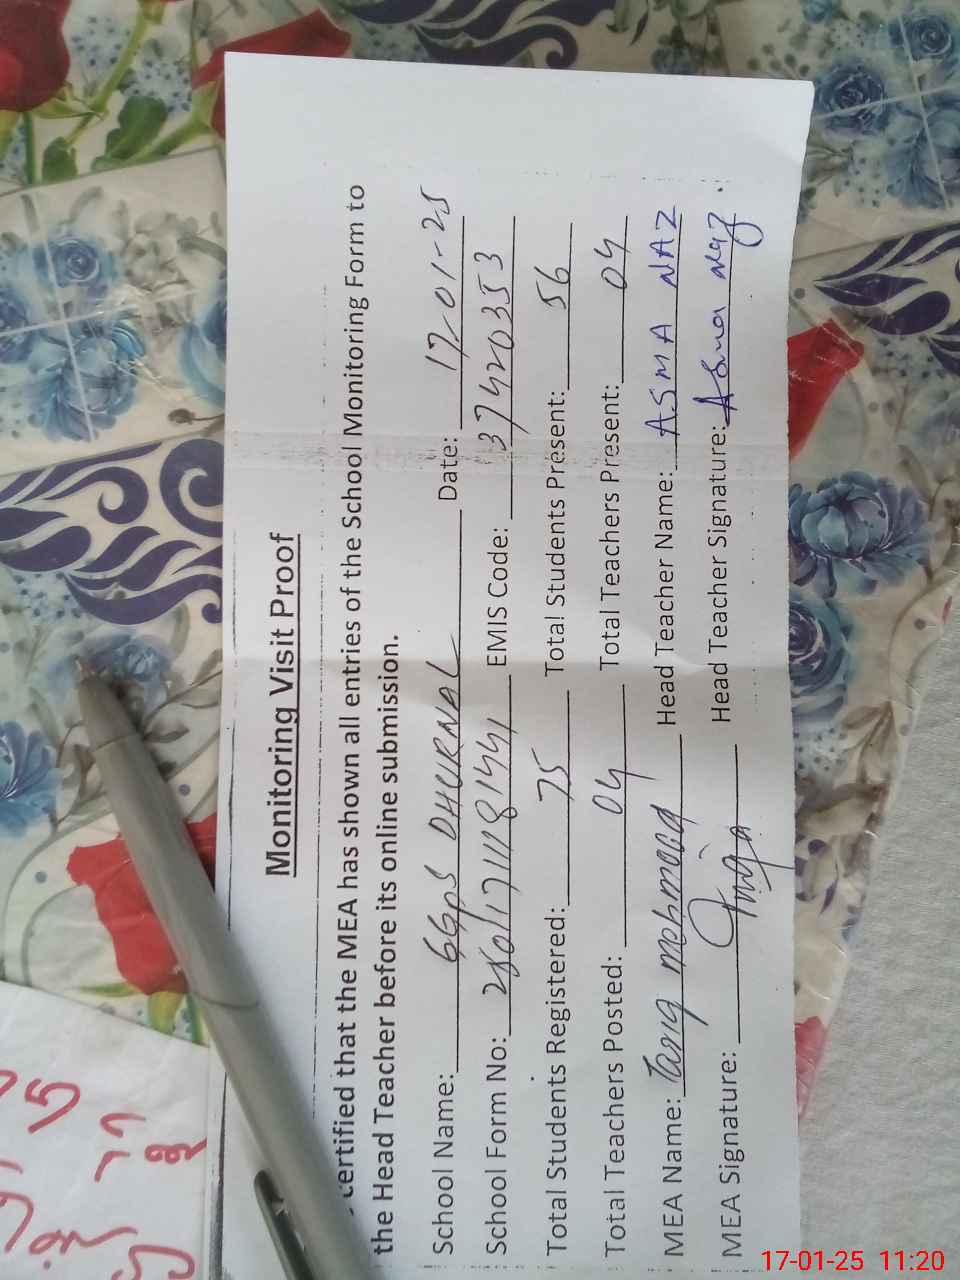 Monitoring Visit Proof
certified that the MEA has shown all entries of the School Monitoring Form to
the Head Teacher before its online submission.
School Name: GGPS DHURNAL Date: 17-01-25
School Form No: EMIS Code: 37420353
Total Students Registered: 75 Total Students Present: 56
Total Teachers Posted: 04 Total Teachers Present: 04
MEA Name: Tariq mahmood Head Teacher Name: ASMA NAZ
MEA Signature: Head Teacher Signature: Asma Naz
17-01-25 11:20